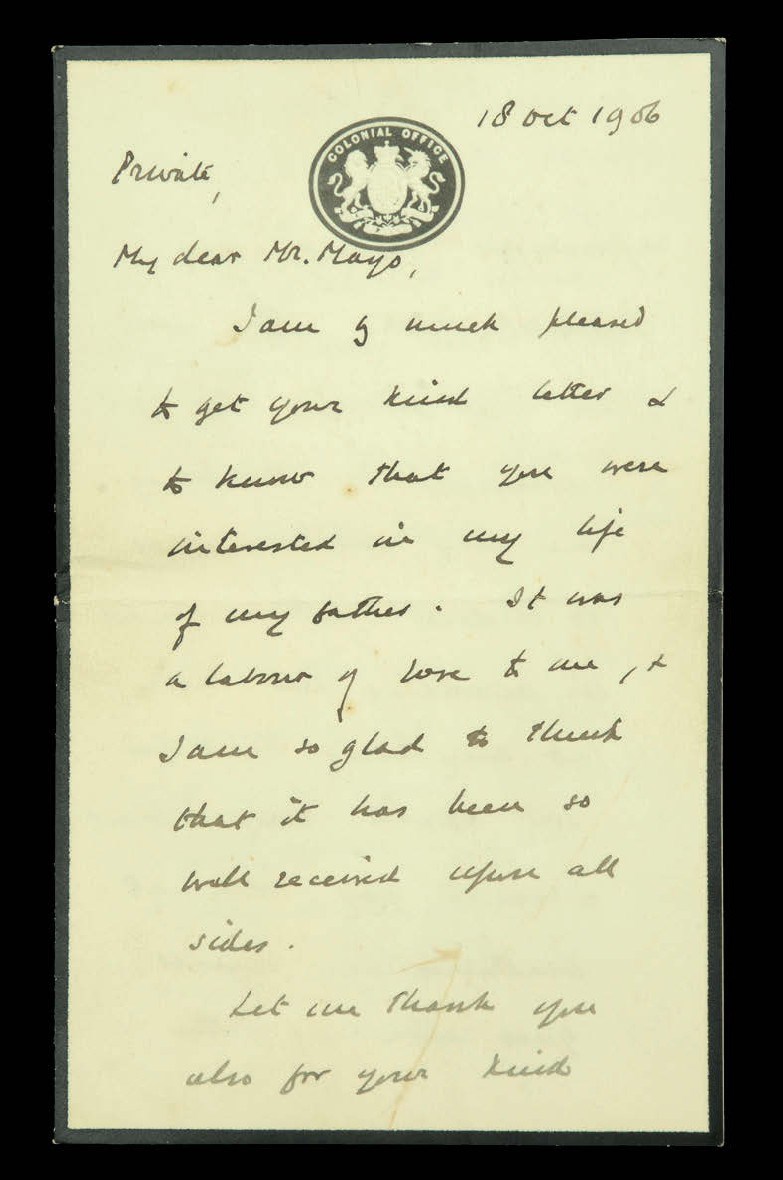 18 Oct 1906
COLONIAL OFFICE
Private,
My dear Mr. Mayo,
I am much pleased
to get your kind letter &
to know that you were
interested in my life
of my father. It was
a labour of love to me, &
I am so glad to think
that it has been so
well received upon all
sides.
Let me thank you
also for your kind